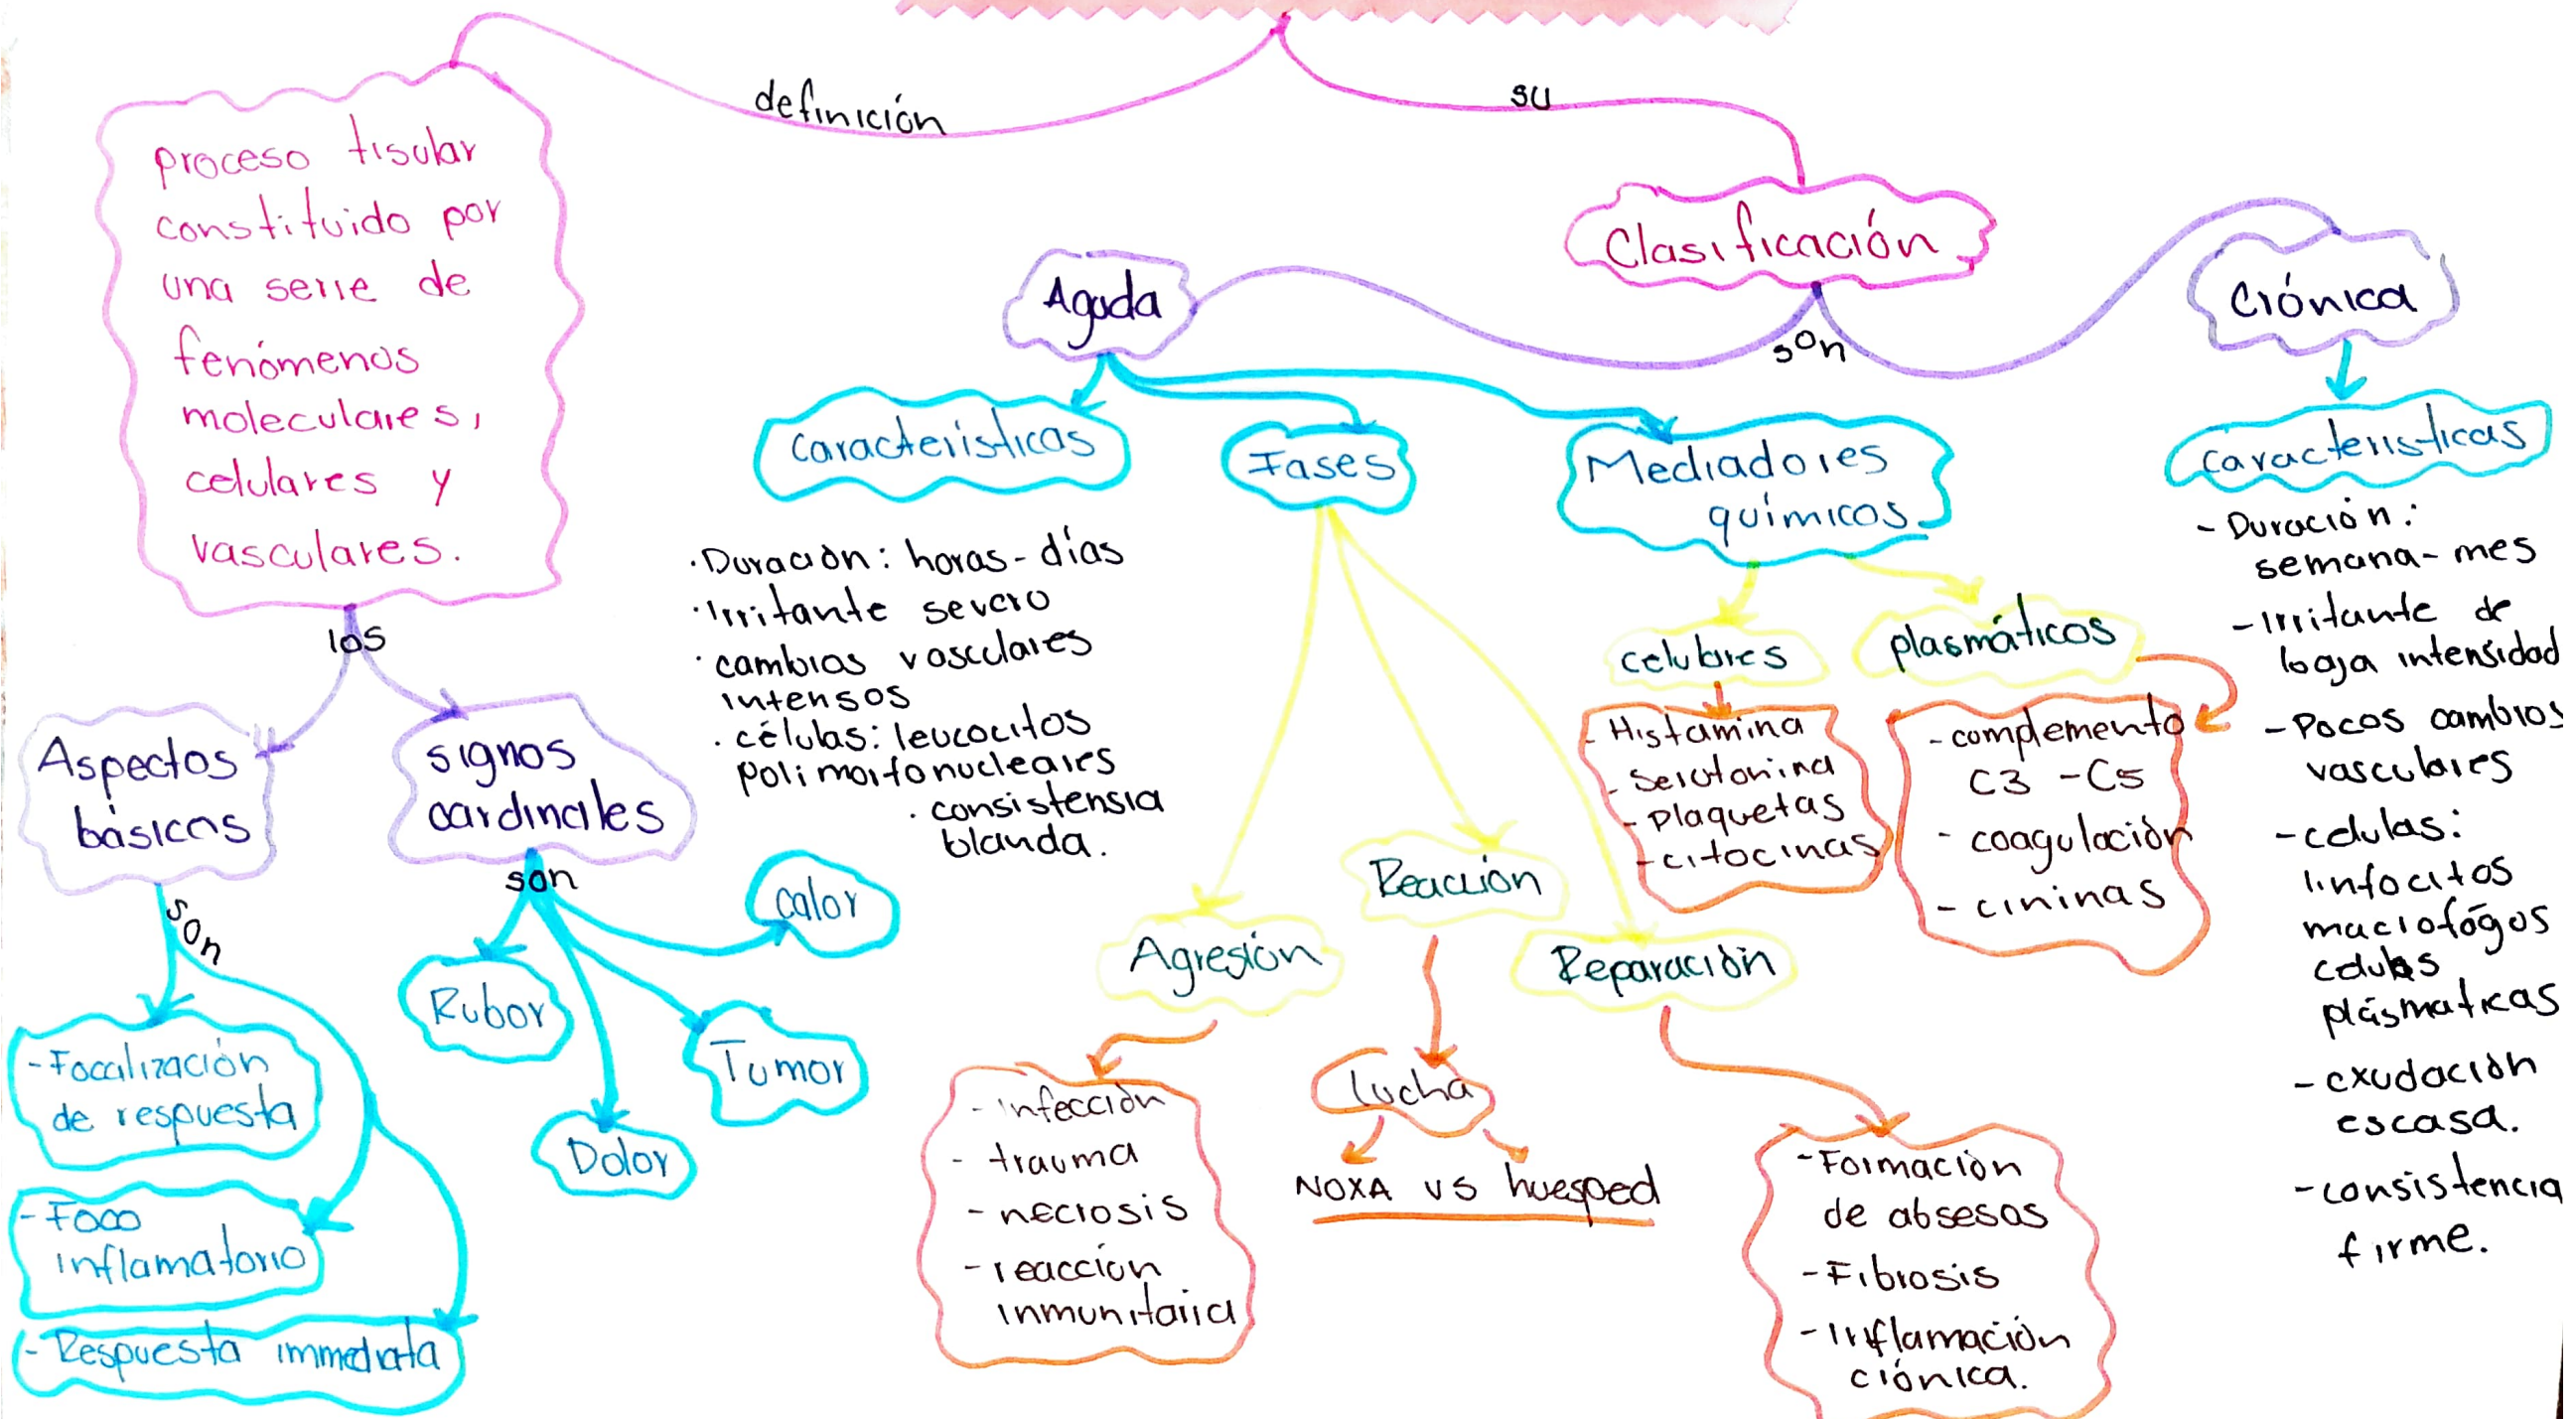 definición
su
proceso tisular
constituido por
una serie de
fenómenos
moleculares,
celulares y
vasculares.
los
Aspectos
básicos
son
- Focalización
de respuesta
- Foco
inflamatorio
- Respuesta immediata
signos
cardinales
son
Rubor
Dolor
Tumor
calor
Clasificación
son
Aguda
Características
· Duración: horas - días
· Irritante severo
· cambios vasculares
intensos
· células: leucocitos
polimorfonucleares
· consistensia
blanda.
Fases
Agresión
- infección
- trauma
- necrosis
- reaccion
inmunitaria
Reacción
lucha
NOXA vs huesped
Reparación
- Formación
de absesos
- Fibrosis
- Inflamación
crónica.
Mediadores
químicos
celulares
- Histamina
- Serotonina
- Plaquetas
- citocinas
plasmáticos
- complemento
C3 - C5
- coagulación
- cininas
Crónica
Caracteristicas
- Duración:
semana - mes
- Irritante de
baja intensidad
- Pocos cambios
vasculares
- celulas:
linfocitos
macrofágos
celulas
plásmaticas
- exudación
escasa.
- consistencia
firme.